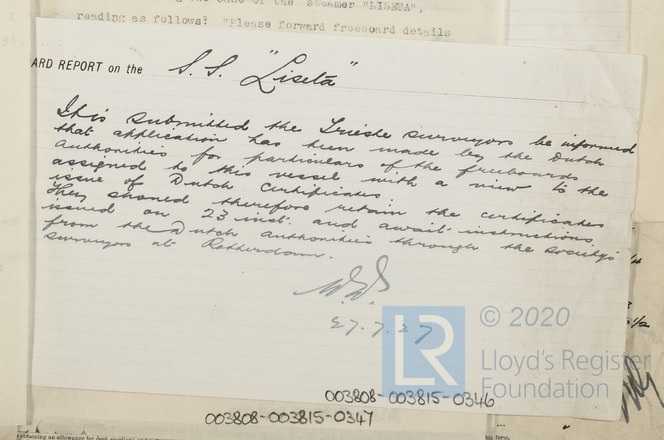 the case of the steamer "LISETA",
reading as follows: "Please forward freeboard details
ARD REPORT on the S.S. "Liseta"
It is submitted the Trieste surveyors be informed
that application has been made by the Dutch
Authorities for particulars of the freeboards
assigned to this vessel with a view to the
issue of Dutch Certificates.
They should therefore retain the certificates
issued on 23 inst. and await instructions
from the Dutch Authorities through the Society's
surveyors at Rotterdam.
27.7.27
LR
© 2020
Lloyd's Register
Foundation
003808-003815-0346
003808-003815-0347
an allowance for deck
this form.